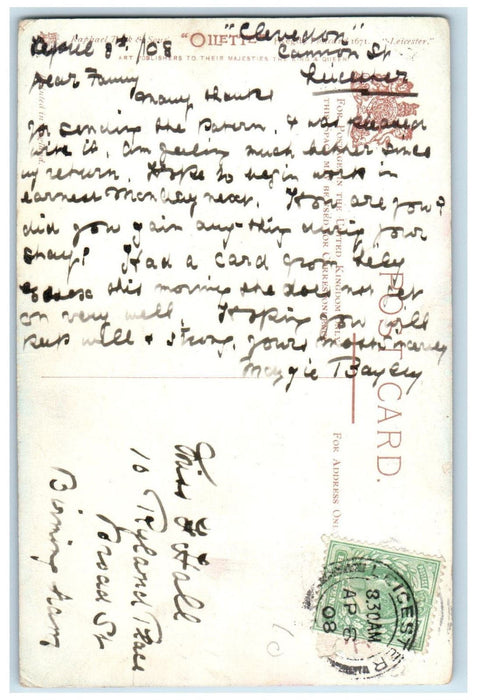 "Clevedon"
Raphael Tuck & Sons' "OILETTE" "Leicester."
April 8th / 08 Cannon St
ART PUBLISHERS TO THEIR MAJESTIES THE KING & QUEEN
Dear Fanny Leicester
Many thanks
for sending the pattern, I was pleased
with it. Am feeling much better since
my return. Hope to begin work in
earnest Monday next. How are you?
did you gain anything during your
stay? Had a card from
this morning she does not get
on very well. Hoping you will
keep well & strong, yours most
Maggie Bayley
FOR POSTAGE IN THE UNITED KINGDOM ONLY
THIS SPACE MAY BE USED FOR CORRESPONDENCE
POST CARD.
FOR ADDRESS ONLY
Miss F Hall
10 Ryland Place
Broad St
Birmingham
LEICESTER
8.30 AM
AP
08